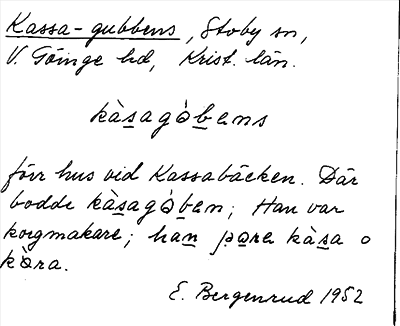 Kassa-gubbens, Stoby sn,
V. Göinge hd, Krist. län.
kàsagòbens
förr hus vid Kassabäcken. Där
bodde kàsagòben; Han var
korgmakare; han pære kàsa o
kòra.
E. Bergenrud 1952